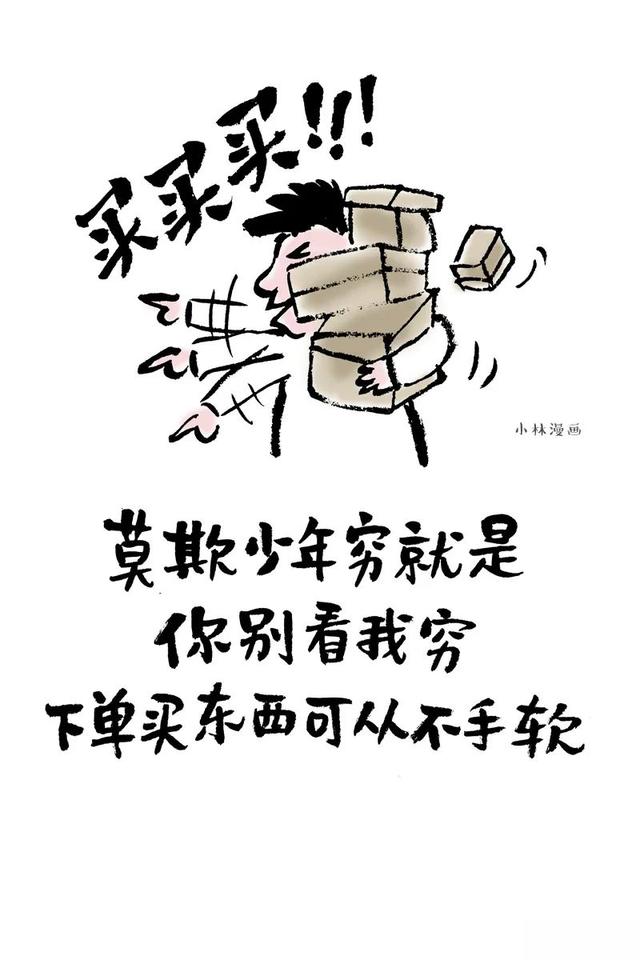 买买买!!!
小林漫画
莫欺少年穷就是
你别看我穷
下单买东西可从不手软